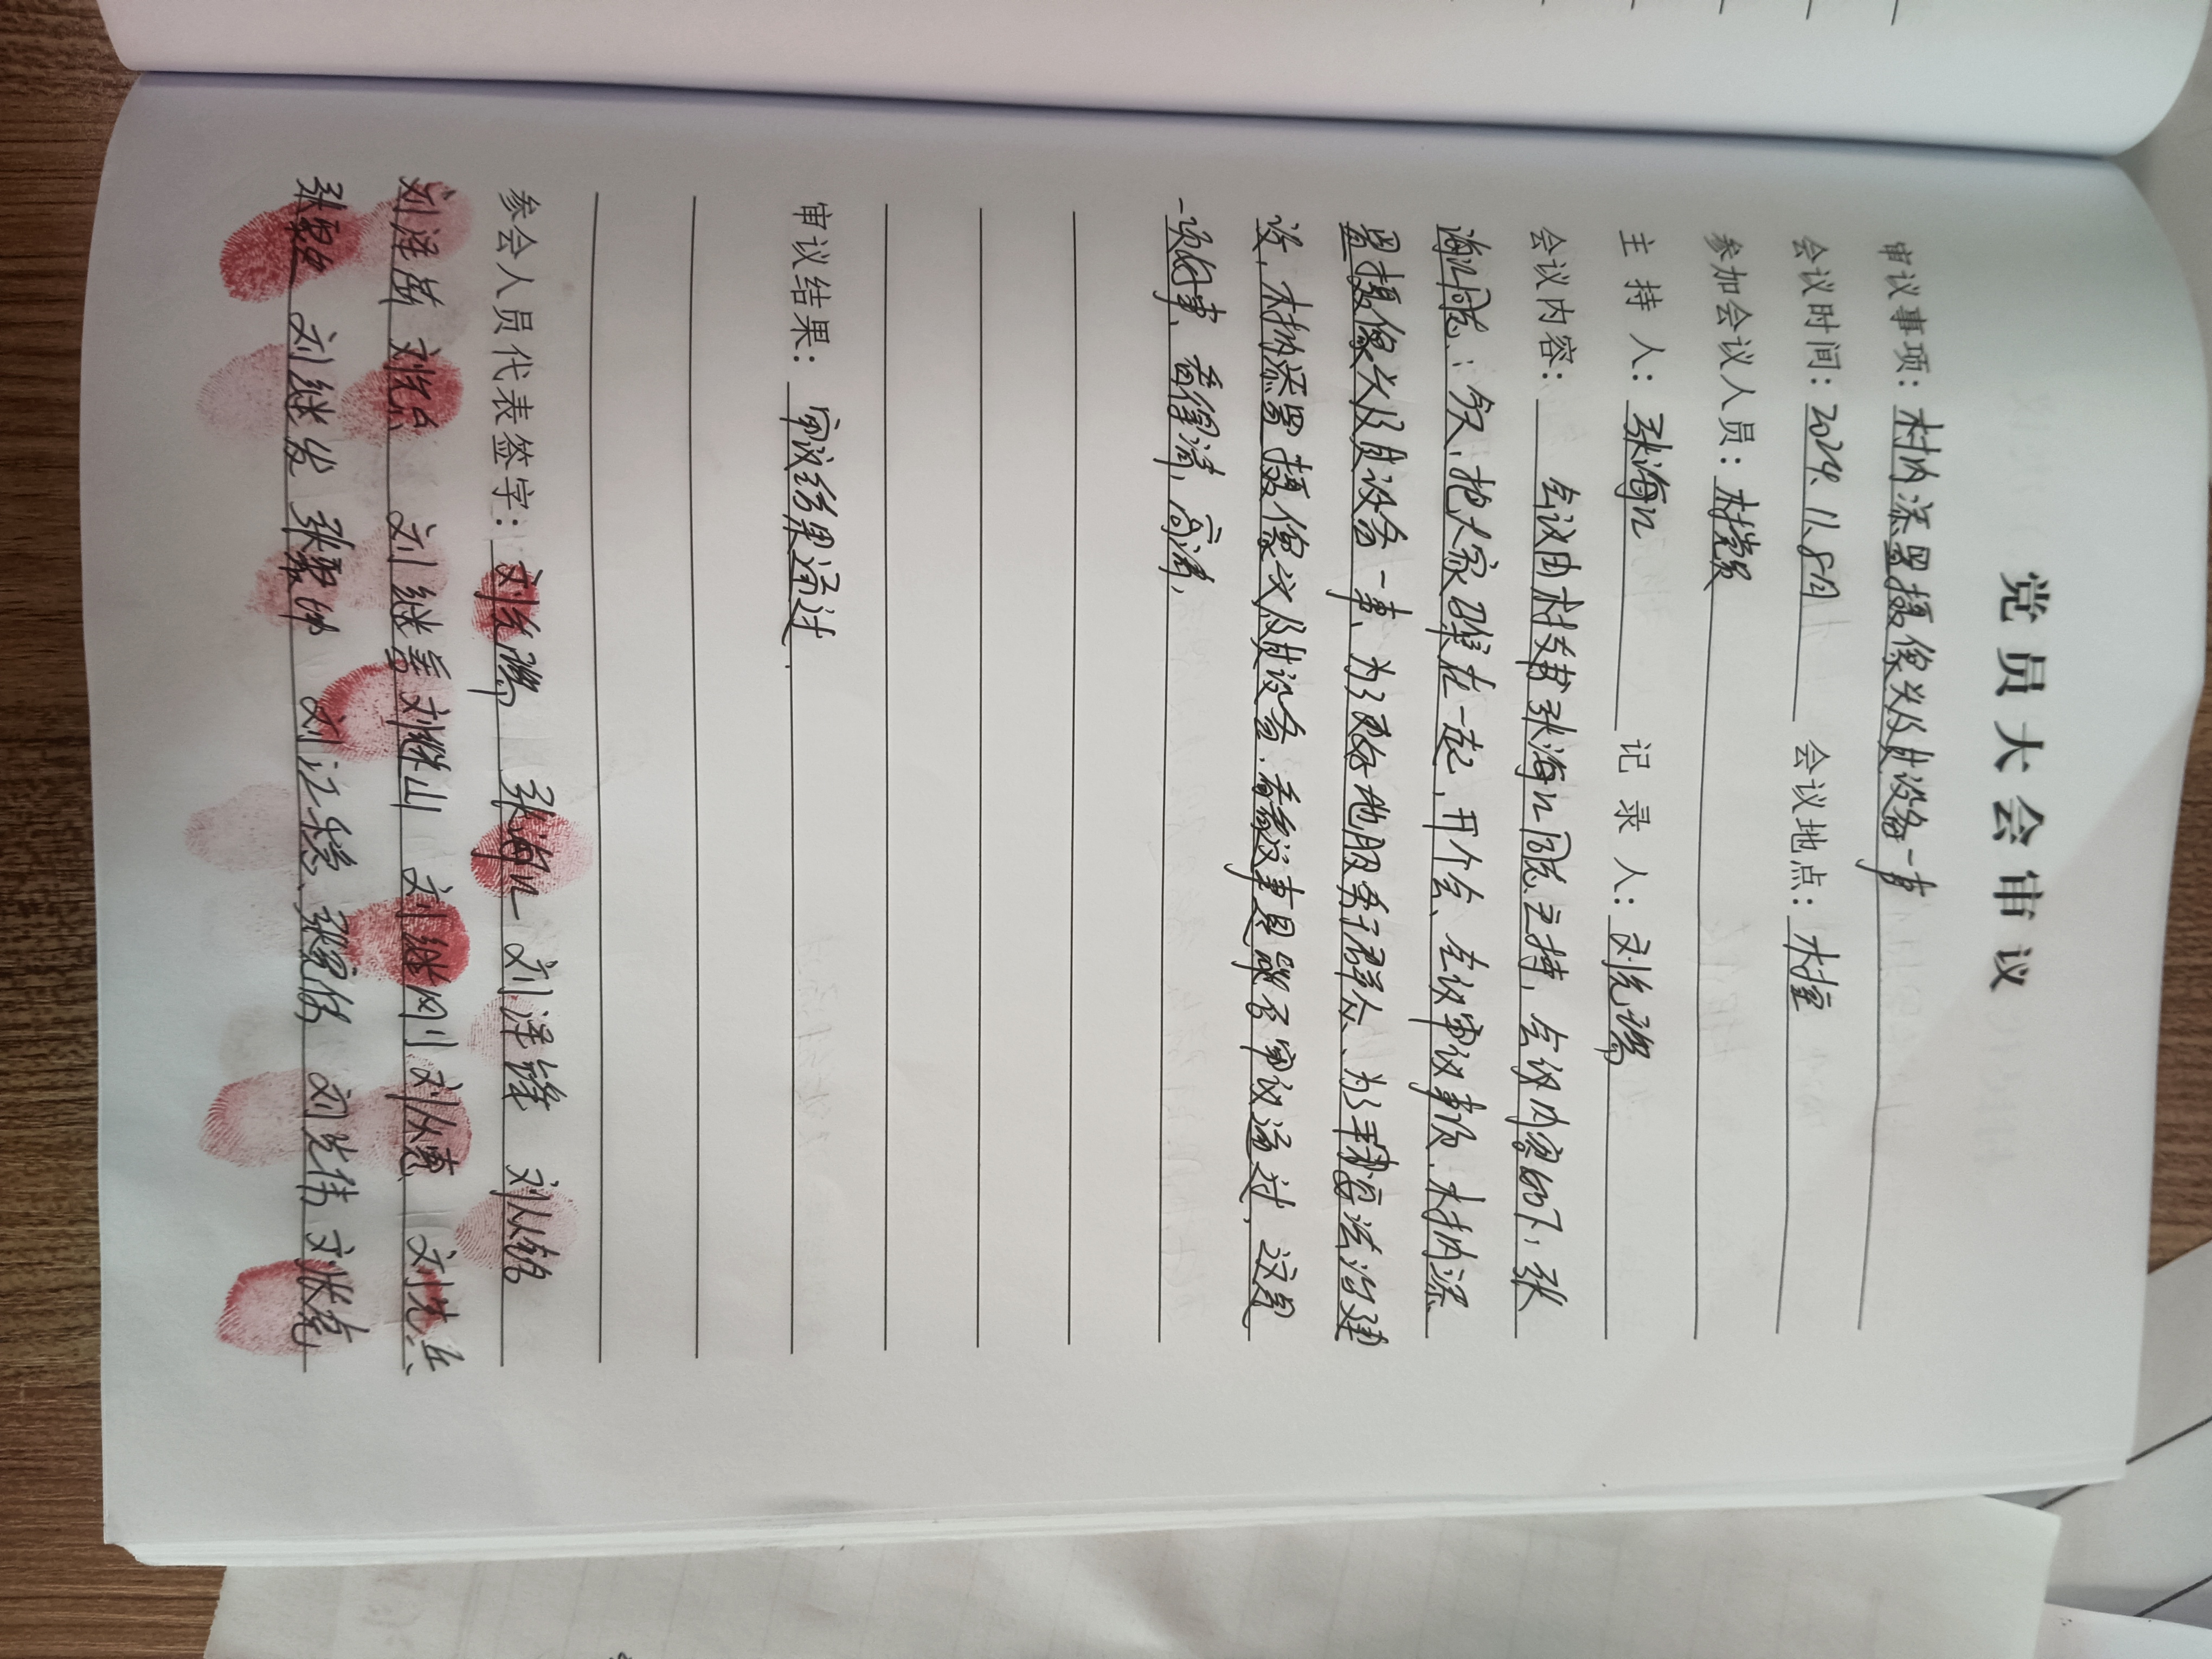 党员大会审议
审议事项：村内添置摄像头及其设备一事
会议时间：2024.11.8日 会议地点：村室
参加会议人员：村党员
主持人：张海江 记录人：刘先瑞
会议内容：会议由村支书张海江同志主持，会议内容如下：张
海江同志：今天，把大家召集在一起，开个会、会议审议事项、村内添
置摄像头及其设备一事、为了更好地服务于群众、为了法治建
设，村内添置摄像头及其设备、看看这事是能否审议通过，这是
一项好事、看得清，高清，
审议结果：审议结果通过.
参会人员代表签字：刘先瑞 张海江 刘泽锋 刘从铭
刘泽 刘先 刘继善 刘继山 刘继刚 刘从惠 刘先兵
张聚 刘继发 张聚坤 刘江稳、张宪 刘先伟 刘长亮